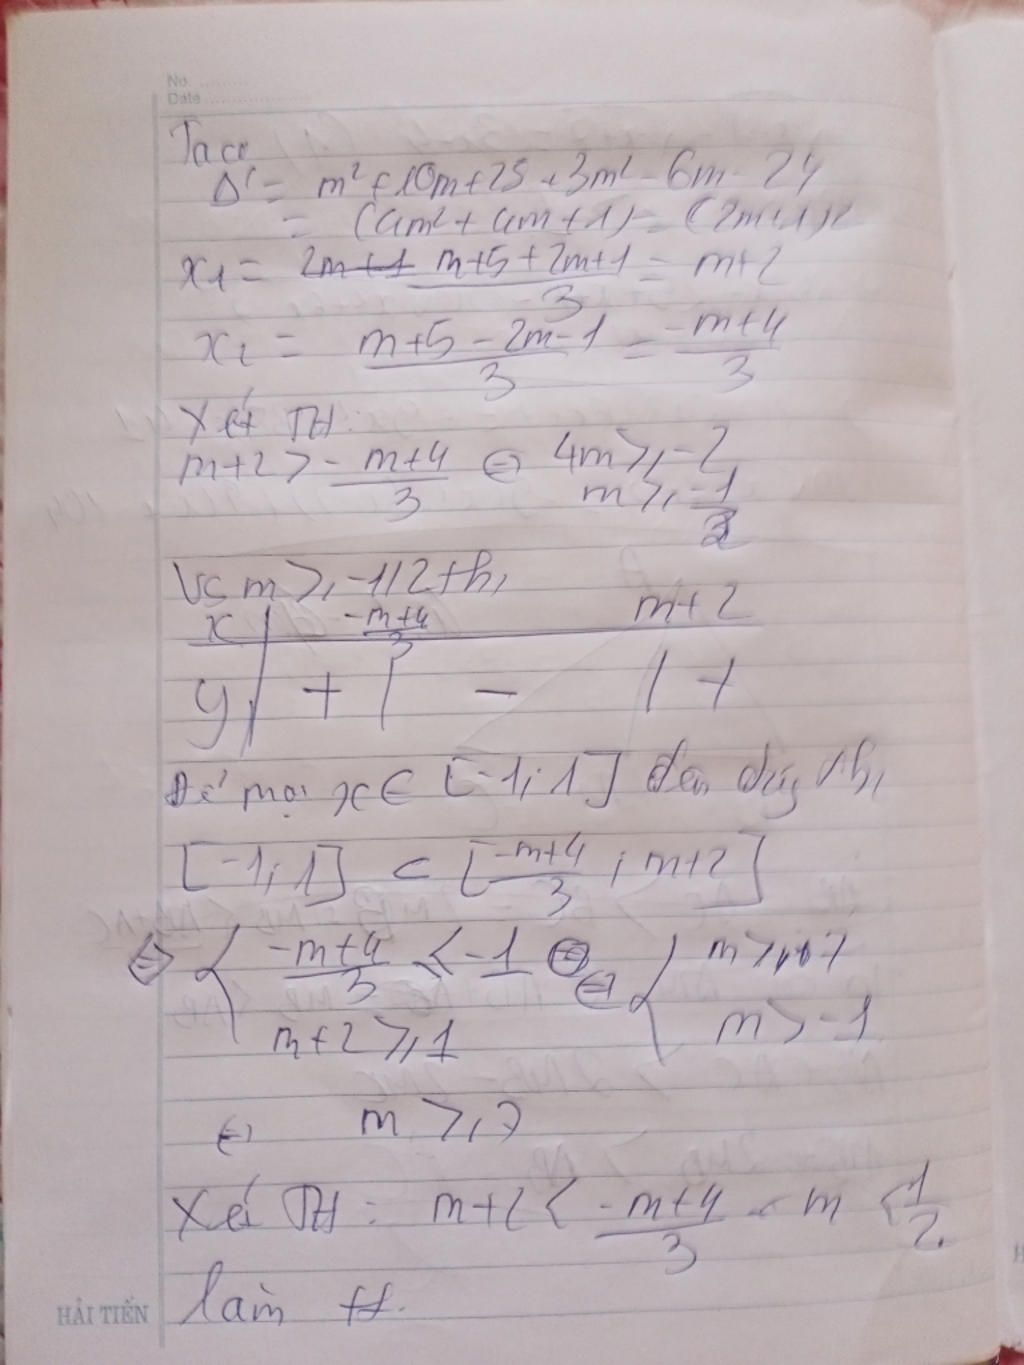 No.
Date
Ta có
Δ' = m² + 10m + 25 + 3m² - 6m - 24
= (4m² + 4m + 1) = (2m+1)2
x1 = 2m+1 m+5+2m+1 / 3 = m+2
x2 = m+5-2m-1 / 3 = -m+4 / 3
Xét TH:
m+2 > -m+4 / 3 ⇔ 4m ≥ -2
m ≥ -1/2
Với m ≥ -1/2 th,
x | -m+4 / 3 m+2
y, | + | - | +
Để mọi x ∈ [-1; 1] đều th,
[-1; 1] ⊂ [-m+4 / 3 ; m+2]
⇔ { -m+4 / 3 ≤ -1 ⇔ ⇔ { m ≥ 7
m+2 ≥ 1 m > -1
⇔ m ≥ 7
Xét TH: m+2 < -m+4 / 3 m < 1/2
làm tt.
HẢI TIẾN